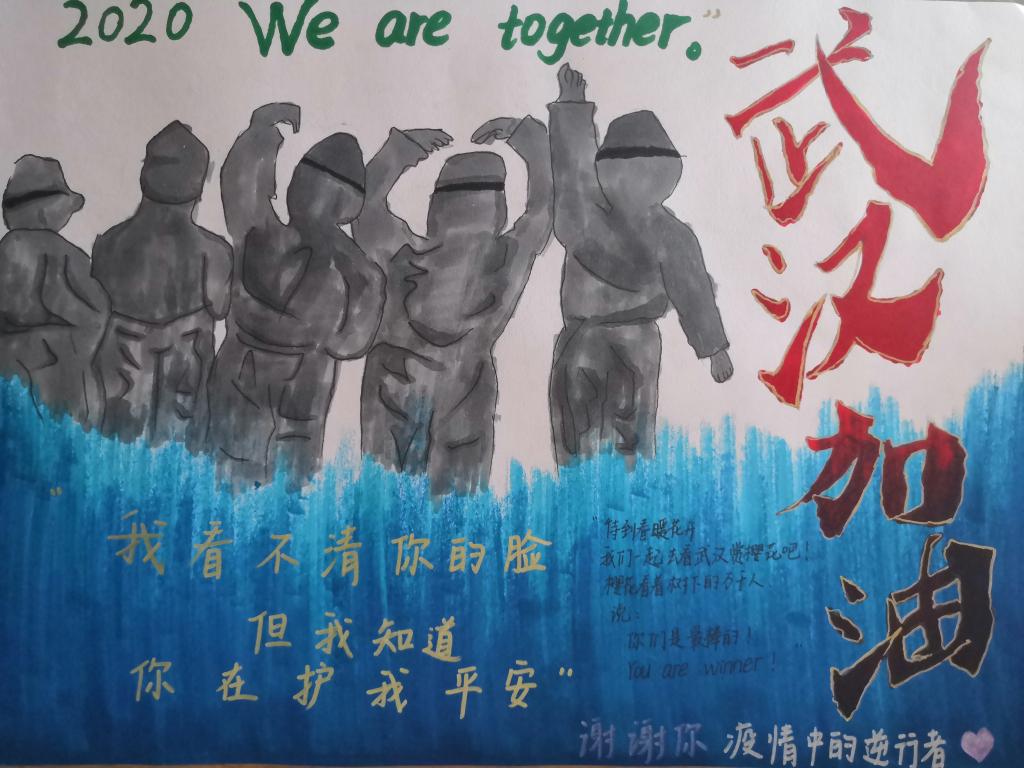 2020 We are together.”
武汉加油
“我看不清你的脸
但我知道
你在护我平安”
“待到春暖花开
我们一起去看武汉赏樱花吧！
樱花看着树下的万千人
说：
你们是最棒的！
You are winner！”
谢谢你 疫情中的逆行者